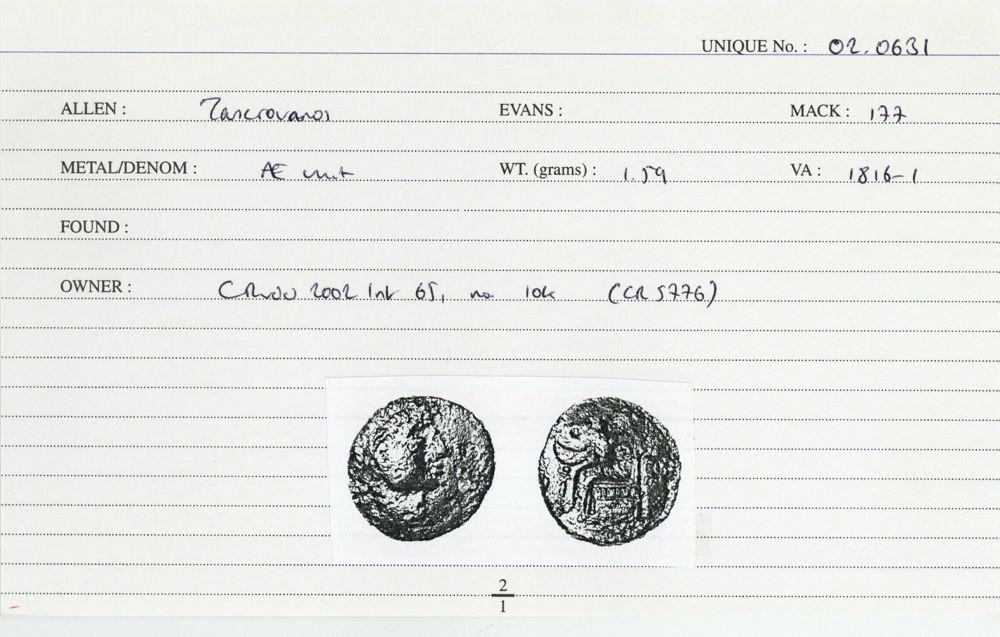 UNIQUE No. : 02.0631
ALLEN : Tasciovanos EVANS : MACK : 177
METAL/DENOM : Æ unit WT. (grams) : 1.59 VA : 1816-1
FOUND :
OWNER : 2002 Int 65, no. (CR 5776)
2
1